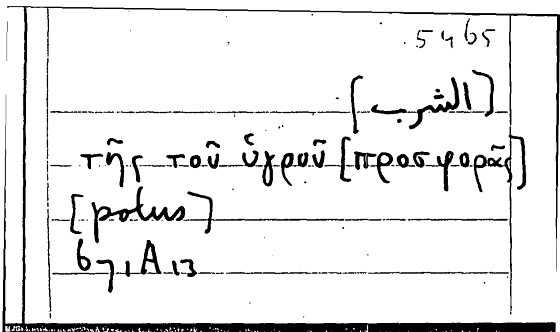 5465
[الشرب]
τῆς τοῦ ὑγροῦ [προσφορᾶς]
[potus]
671A13